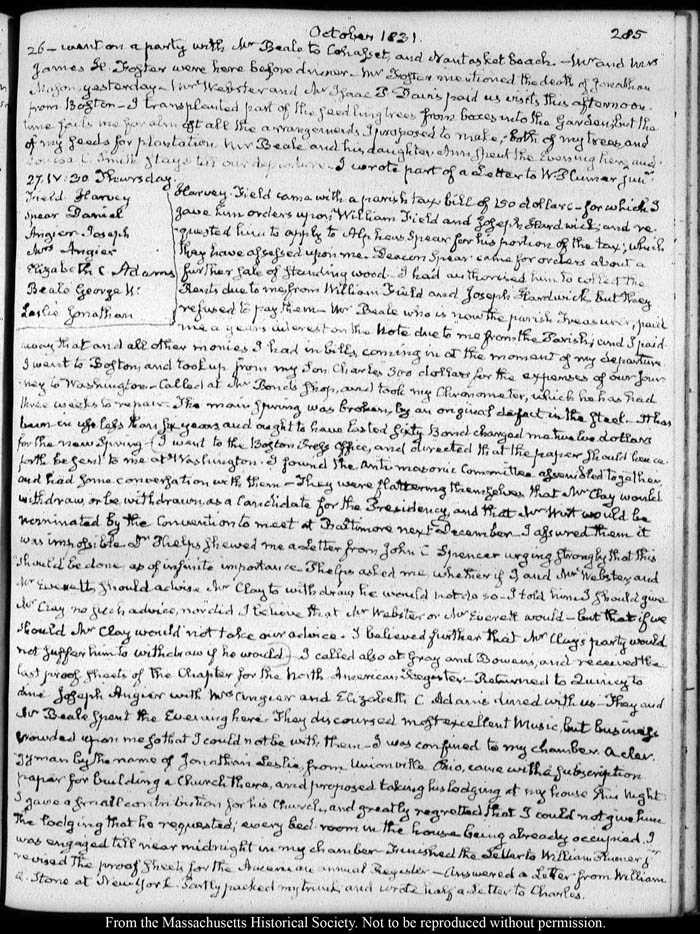 October 1831.
285
26 – went on a party with Mr Beale to Cohasset, and Nantasket beach. – Mr and Mrs
James H. Foster were here before dinner. Mr Foster mentioned the death of Jonathan
Mason, yesterday – Mr Webster and Mr Isaac P. Davis paid us visits this afternoon
from Boston – I transplanted part of the seedling trees from boxes into the Garden, but the
time fails me for almost all the arrangements I proposed to make, both of my trees, and
of my seeds for plantation. Mr Beale and his daughter Ann spent the Evening here, and
Louisa C. Smith stays till our departure – I wrote part of a Letter to W. Plumer junr.
27. IV: 30. Thursday
Field Harvey
Spear Daniel
Angier Joseph
Mrs Angier
Elizabeth C. Adams
Beale George W.
Leslie Jonathan
Harvey Field came with a parish tax bill of 150 dollars – for which I
gave him orders upon William Field and Joseph Hardwick; and re-
quested him to apply to Alpheus Spear for his portion of the tax; which
they have assessed upon me. Deacon Spear came for orders about a
further sale of standing wood – I had authorised him to collect the
Rents due to me from William Field and Joseph Hardwick but they
refused to pay them – Mr Beale who is now the parish Treasurer, paid
me a years interest on the Note due to me from the Parish; and I paid
away that and all other monies I had in bills, coming in at the moment of my departure
I went to Boston, and took up from my Son Charles 300 dollars for the expenses of our jour-
ney to Washington – Called at Mr Bond's Shop, and took my Chronometer, which he has had
three weeks to repair. The main Spring was broken, by an original defect in the Steel. It has
been in use less than six years and ought to have lasted sixty. Bond charged me twelve dollars
for the new Spring – I went to the Boston Press Office, and directed that the paper should hence-
forth be sent to me at Washington. I found the Anti-masonic Committee assembled together,
and had some conversation with them – They were flattering themselves that Mr Clay would
withdraw or be withdrawn as a Candidate for the Presidency, and that Mr Wirt would be
nominated by the Convention to meet at Baltimore next December – I assured them it
was impossible – Dr Phelps shewed me a Letter from John C. Spencer urging strongly that this
should be done, as of infinite importance – Phelps asked me, whether if I and Mr Webster, and
Mr Everett, should advise Mr Clay to withdraw he would not do so – I told him I should give
Mr Clay no such advice, nor did I believe that Mr Webster or Mr Everett would – but that if we
should Mr Clay would not take our advice. I believed further that Mr Clay's party would
not suffer him to withdraw if he would) I called also at Gray and Bowens, and received the
last proof sheets of the Chapter for the North American Register – Returned to Quincy to
dine Joseph Angier with Mrs Angier and Elizabeth C. Adams dined with us – They and
Mr Beale spent the Evening here. They discoursed most excellent Music, but business
crowded upon me so that I could not be with them – I was confined to my chamber. A cler-
gyman by the name of Jonathan Leslie, from Unionville Ohio, came with a subscription
paper for building a Church there, and proposed taking his lodging at my house this Night.
I gave a small contribution for his Church, and greatly regretted that I could not give him
the lodging that he requested; every bed-room in the house being already occupied. I
was engaged till near midnight in my chamber – Finished the Letter to William Plumer jr.
revised the proof sheets for the American annual Register – Answered a Letter from William
L. Stone at New York. Partly packed my trunk, and wrote half a Letter to Charles.
From the Massachusetts Historical Society. Not to be reproduced without permission.